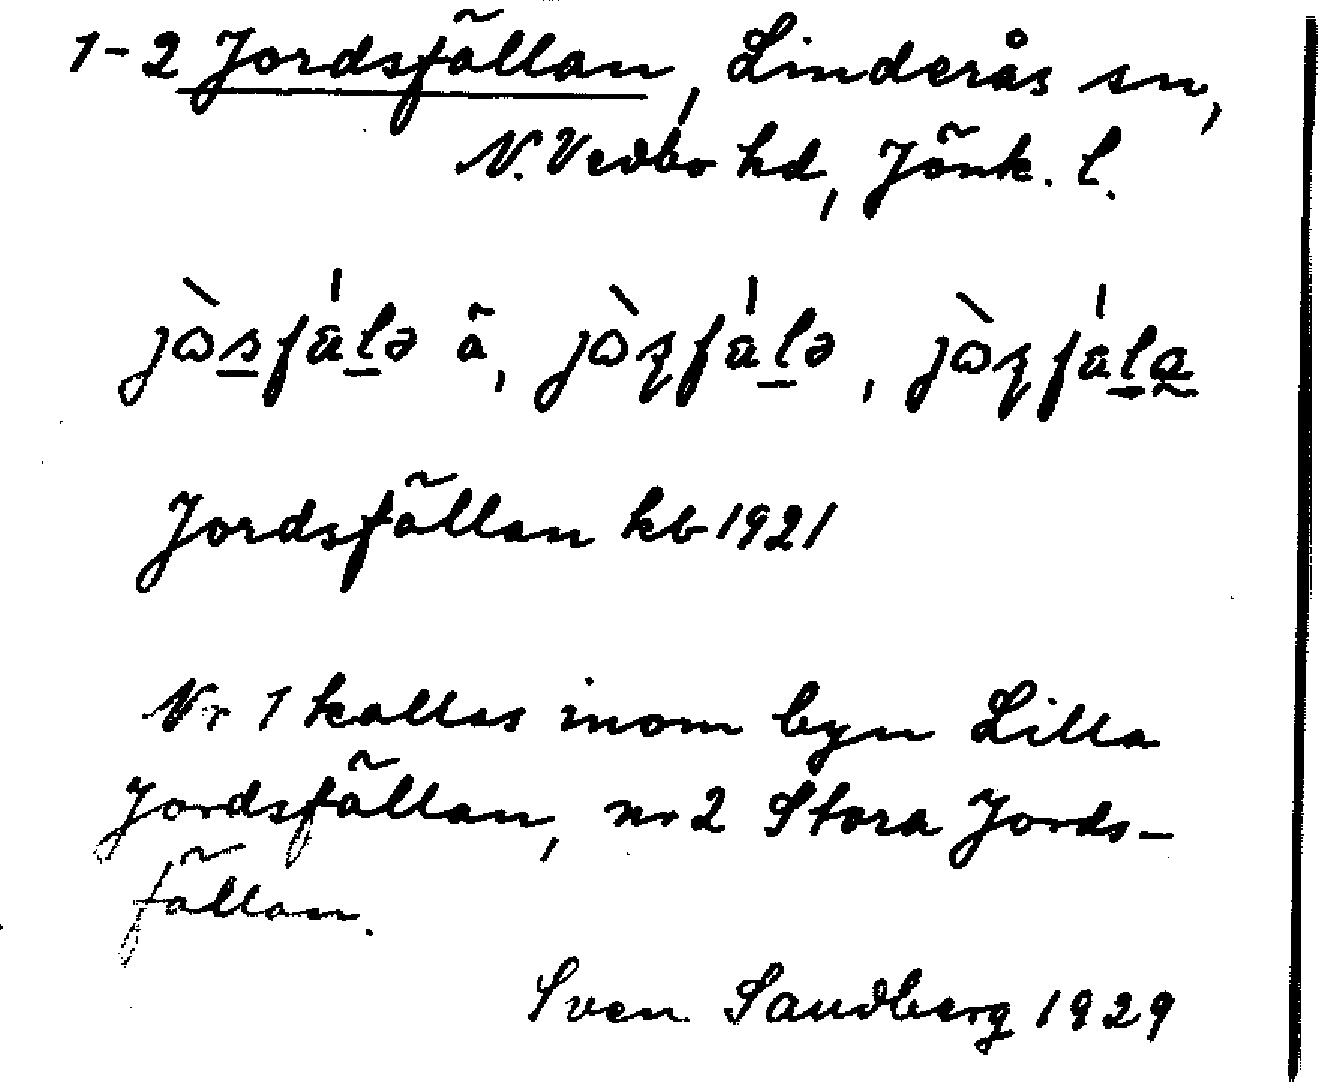 1-2 Jordsfällan, Linderås sn,
N. Vedbo hd, Jönk. l.
Jordsfällan kb 1921
Nr 1 kallas inom byn Lilla
Jordsfällan, nr 2 Stora Jords-
fällan.
Sven Sandberg 1929